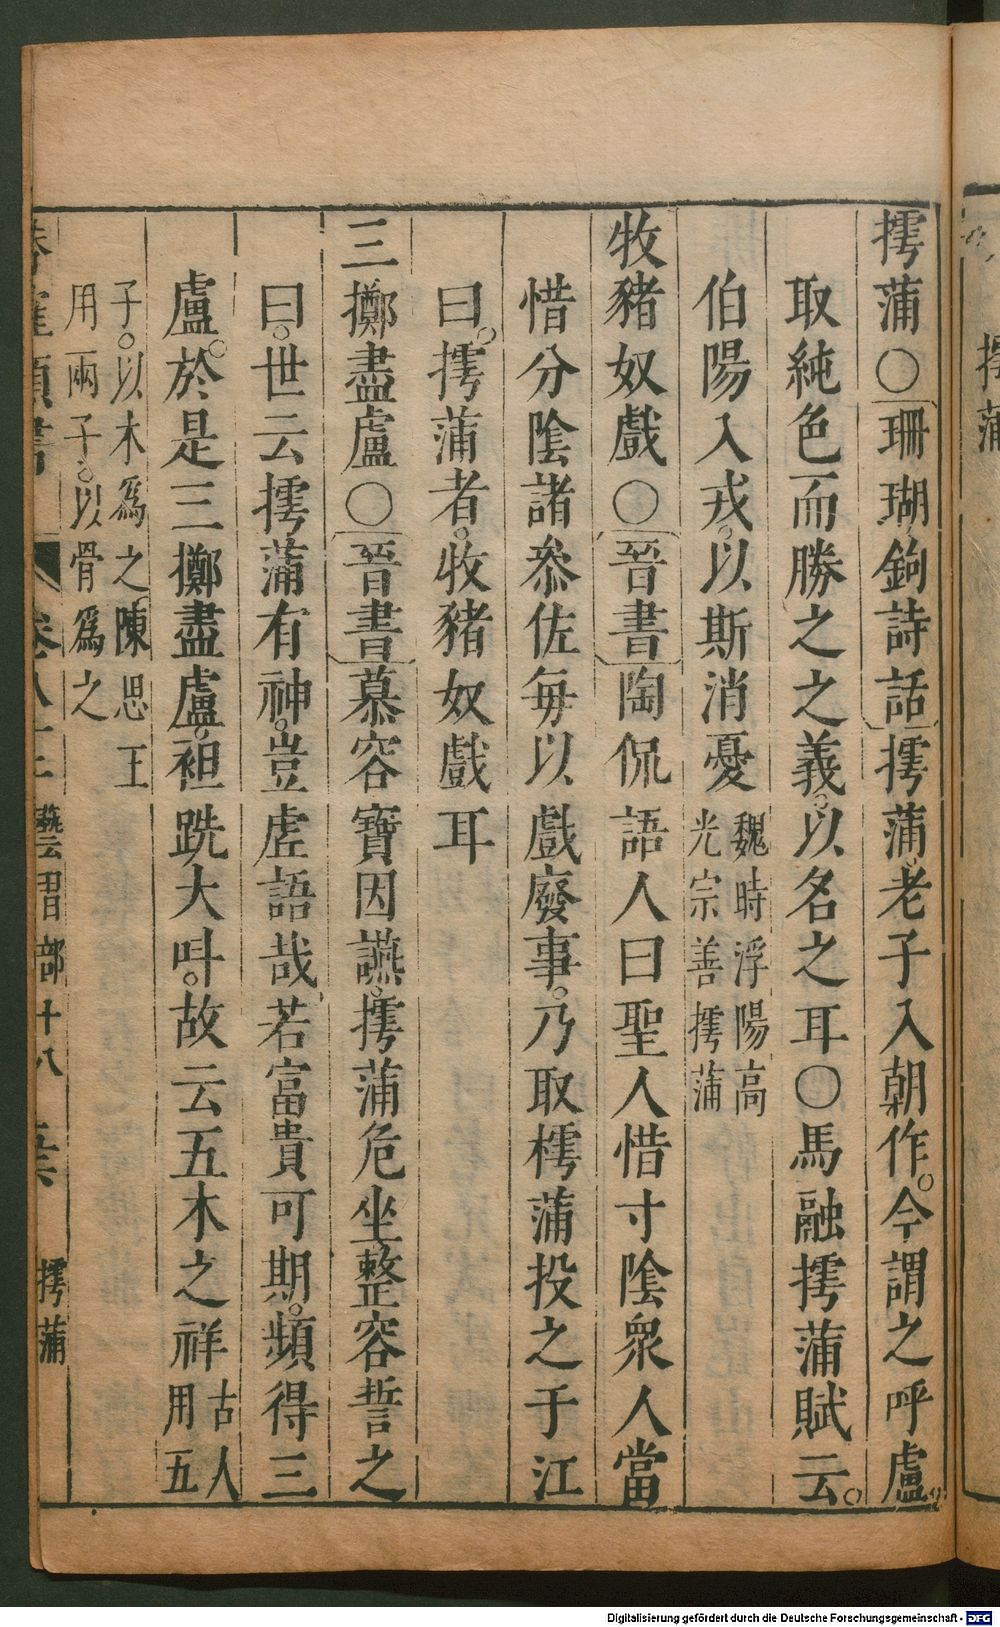 摴蒲○珊瑚鉤詩話摴蒲老子入朝作。今謂之呼盧。
取純色而勝之之義。以名之耳○馬融摴蒲賦云。
伯陽入戎。以斯消憂魏時浮陽高光宗善摴蒲
牧豬奴戲○晉書陶侃語人曰聖人惜寸陰眾人當
惜分陰諸參佐每以戲廢事。乃取樗蒲投之于江
曰。摴蒲者。牧豬奴戲耳
三擲盡盧○晉書慕容寶因讌。摴蒲危坐整容誓之
曰。世云摴蒲有神。豈虛語哉若富貴可期。頻得三
盧。於是三擲盡盧。袒跣大叫。故云五木之祥古人用五
子。以木為之陳思王用兩子。以骨為之
類書 卷八十 藝習部十八 摴蒲
摴蒲
Digitalisierung gefördert durch die Deutsche Forschungsgemeinschaft - DFG